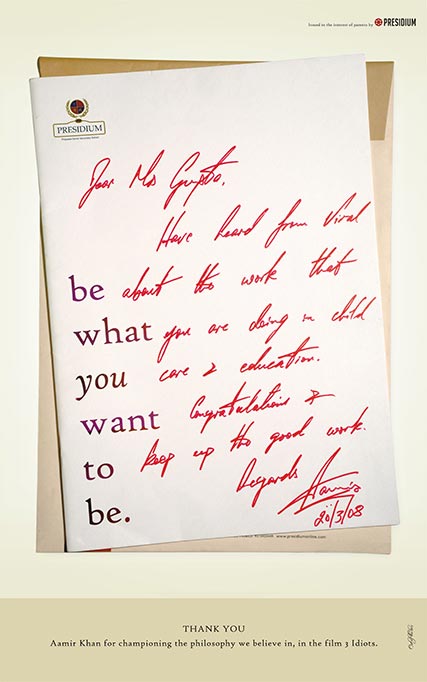 Issued in the interest of parents by PRESIDIUM
PRESIDIUM
Dear Mrs Gupta,
Have heard from Viral
about the work that
you are doing in child
care & education.
Congratulations &
keep up the good work.
Regards
Aamir
20/3/08
be
what
you
want
to
be.
www.presidiumonline.com
THANK YOU
Aamir Khan for championing the philosophy we believe in, in the film 3 Idiots.